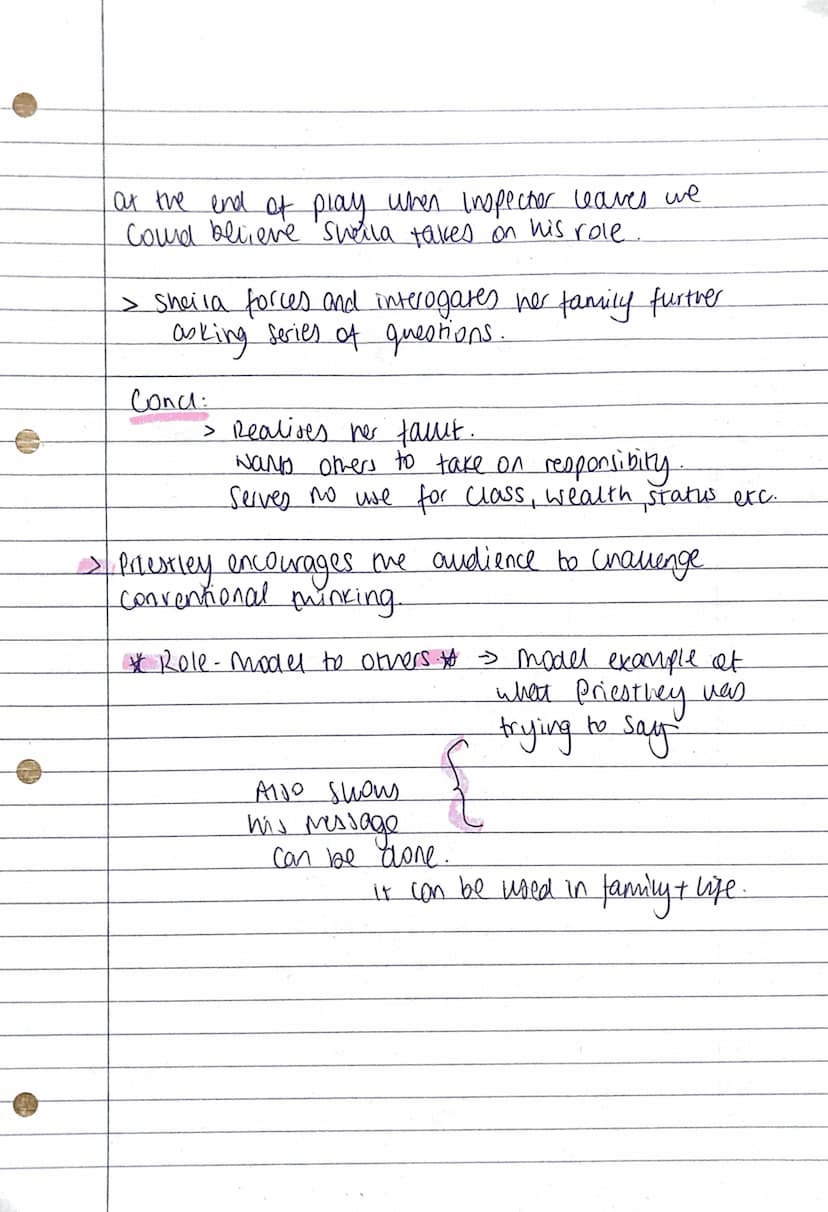 at the end of play when inspector leaves we
could believe Sheila takes on his role.
> Sheila forces and interogates her family further
asking series of questions.
Concl:
> Realises her fault.
Wants others to take on responsibity.
Serves no use for class, wealth, status etc.
> Priestley encourages the audience to challenge
conventional thinking.
* Role-model to others * → model example of
what Priestley was
trying to say
Also shows
his message
can be done.
it can be used in family + life.